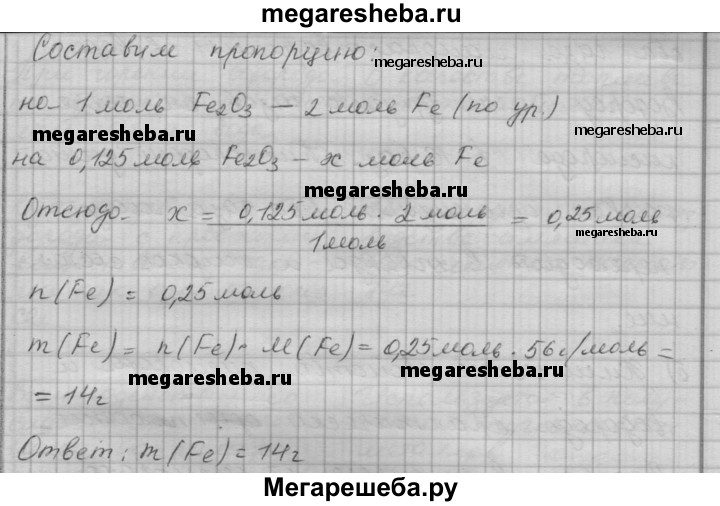 megaresheba.ru
Составим пропорцию:
megaresheba.ru
на 1 моль Fe₂O₃ — 2 моль Fe (по ур.)
megaresheba.ru
megaresheba.ru
на 0,125 моль Fe₂O₃ – x моль Fe
megaresheba.ru
Отсюда x = 0,125 моль · 2 моль / 1 моль = 0,25 моль
megaresheba.ru
n(Fe) = 0,25 моль
m(Fe) = n(Fe) · M(Fe) = 0,25 моль · 56 г/моль =
megaresheba.ru
megaresheba.ru
= 14 г
Ответ: m(Fe) = 14 г
Мегарешеба.ру